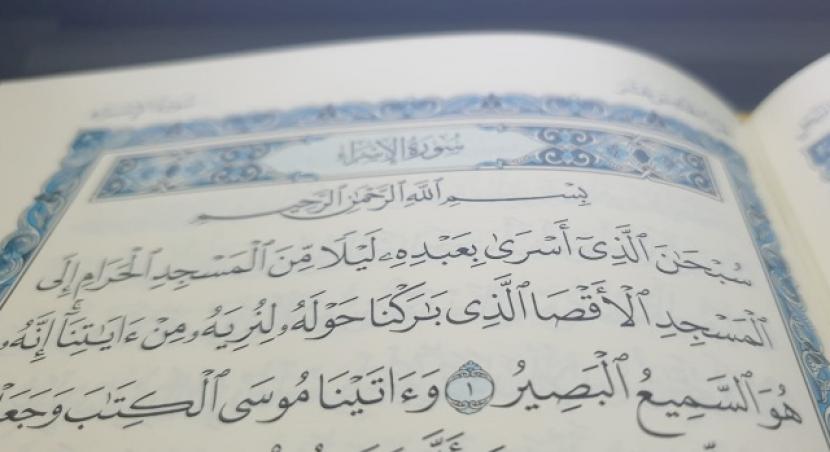 سُورَةُ الإِسْرَاءِ
بِسْمِ ٱللَّهِ ٱلرَّحْمَٰنِ ٱلرَّحِيمِ
سُبْحَٰنَ ٱلَّذِىٓ أَسْرَىٰ بِعَبْدِهِۦ لَيْلًا مِّنَ ٱلْمَسْجِدِ ٱلْحَرَامِ إِلَى
ٱلْمَسْجِدِ ٱلْأَقْصَا ٱلَّذِى بَٰرَكْنَا حَوْلَهُۥ لِنُرِيَهُۥ مِنْ ءَايَٰتِنَآ ۚ إِنَّهُۥ
هُوَ ٱلسَّمِيعُ ٱلْبَصِيرُ ١ وَءَاتَيْنَا مُوسَى ٱلْكِتَٰبَ